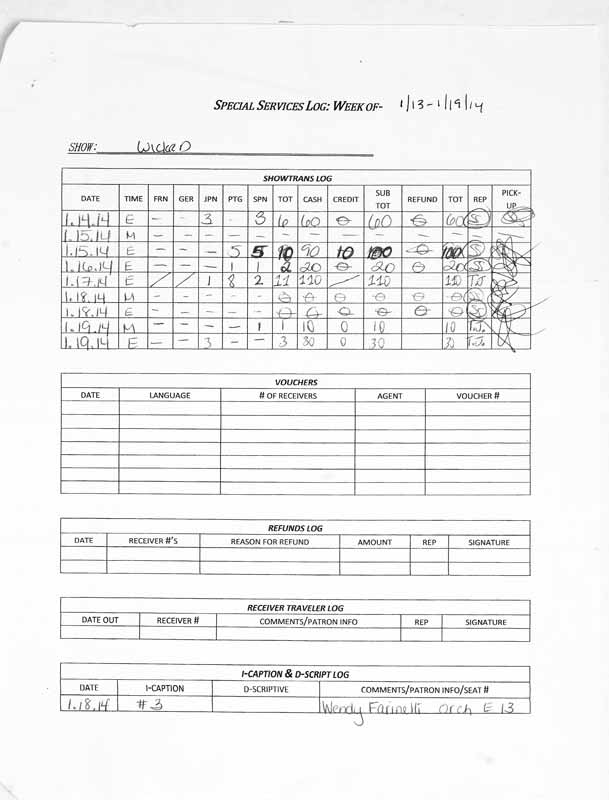 SPECIAL SERVICES LOG: WEEK OF- 1/13-1/19/14
SHOW: WICKED
SHOWTRANS LOG
DATE TIME FRN GER JPN PTG SPN TOT CASH CREDIT SUB TOT REFUND TOT REP PICK-UP
1.14.14 E - - 3 - 3 6 60 0 60 0 60 S
1.15.14 M - - - - - - - - - - - - -
1.15.14 E - - - 5 5 10 90 10 100 0 100 S
1.16.14 E - - - 1 1 2 20 0 20 0 20 S
1.17.14 E / / 1 8 2 11 110 / 110 110 T.J.
1.18.14 M - - - - - 0 0 0 0 0 0 S
1.18.14 E - - - - - 0 0 0 0 0 0 S
1.19.14 M - - - - 1 1 10 0 10 10 T.J.
1.19.14 E - - 3 - - 3 30 0 30 30 T.J.
VOUCHERS
DATE LANGUAGE # OF RECEIVERS AGENT VOUCHER #
REFUNDS LOG
DATE RECEIVER #'S REASON FOR REFUND AMOUNT REP SIGNATURE
RECEIVER TRAVELER LOG
DATE OUT RECEIVER # COMMENTS/PATRON INFO REP SIGNATURE
I-CAPTION & D-SCRIPT LOG
DATE I-CAPTION D-SCRIPTIVE COMMENTS/PATRON INFO/SEAT #
1.18.14 #3 Wendy Farinelli Orch E 13